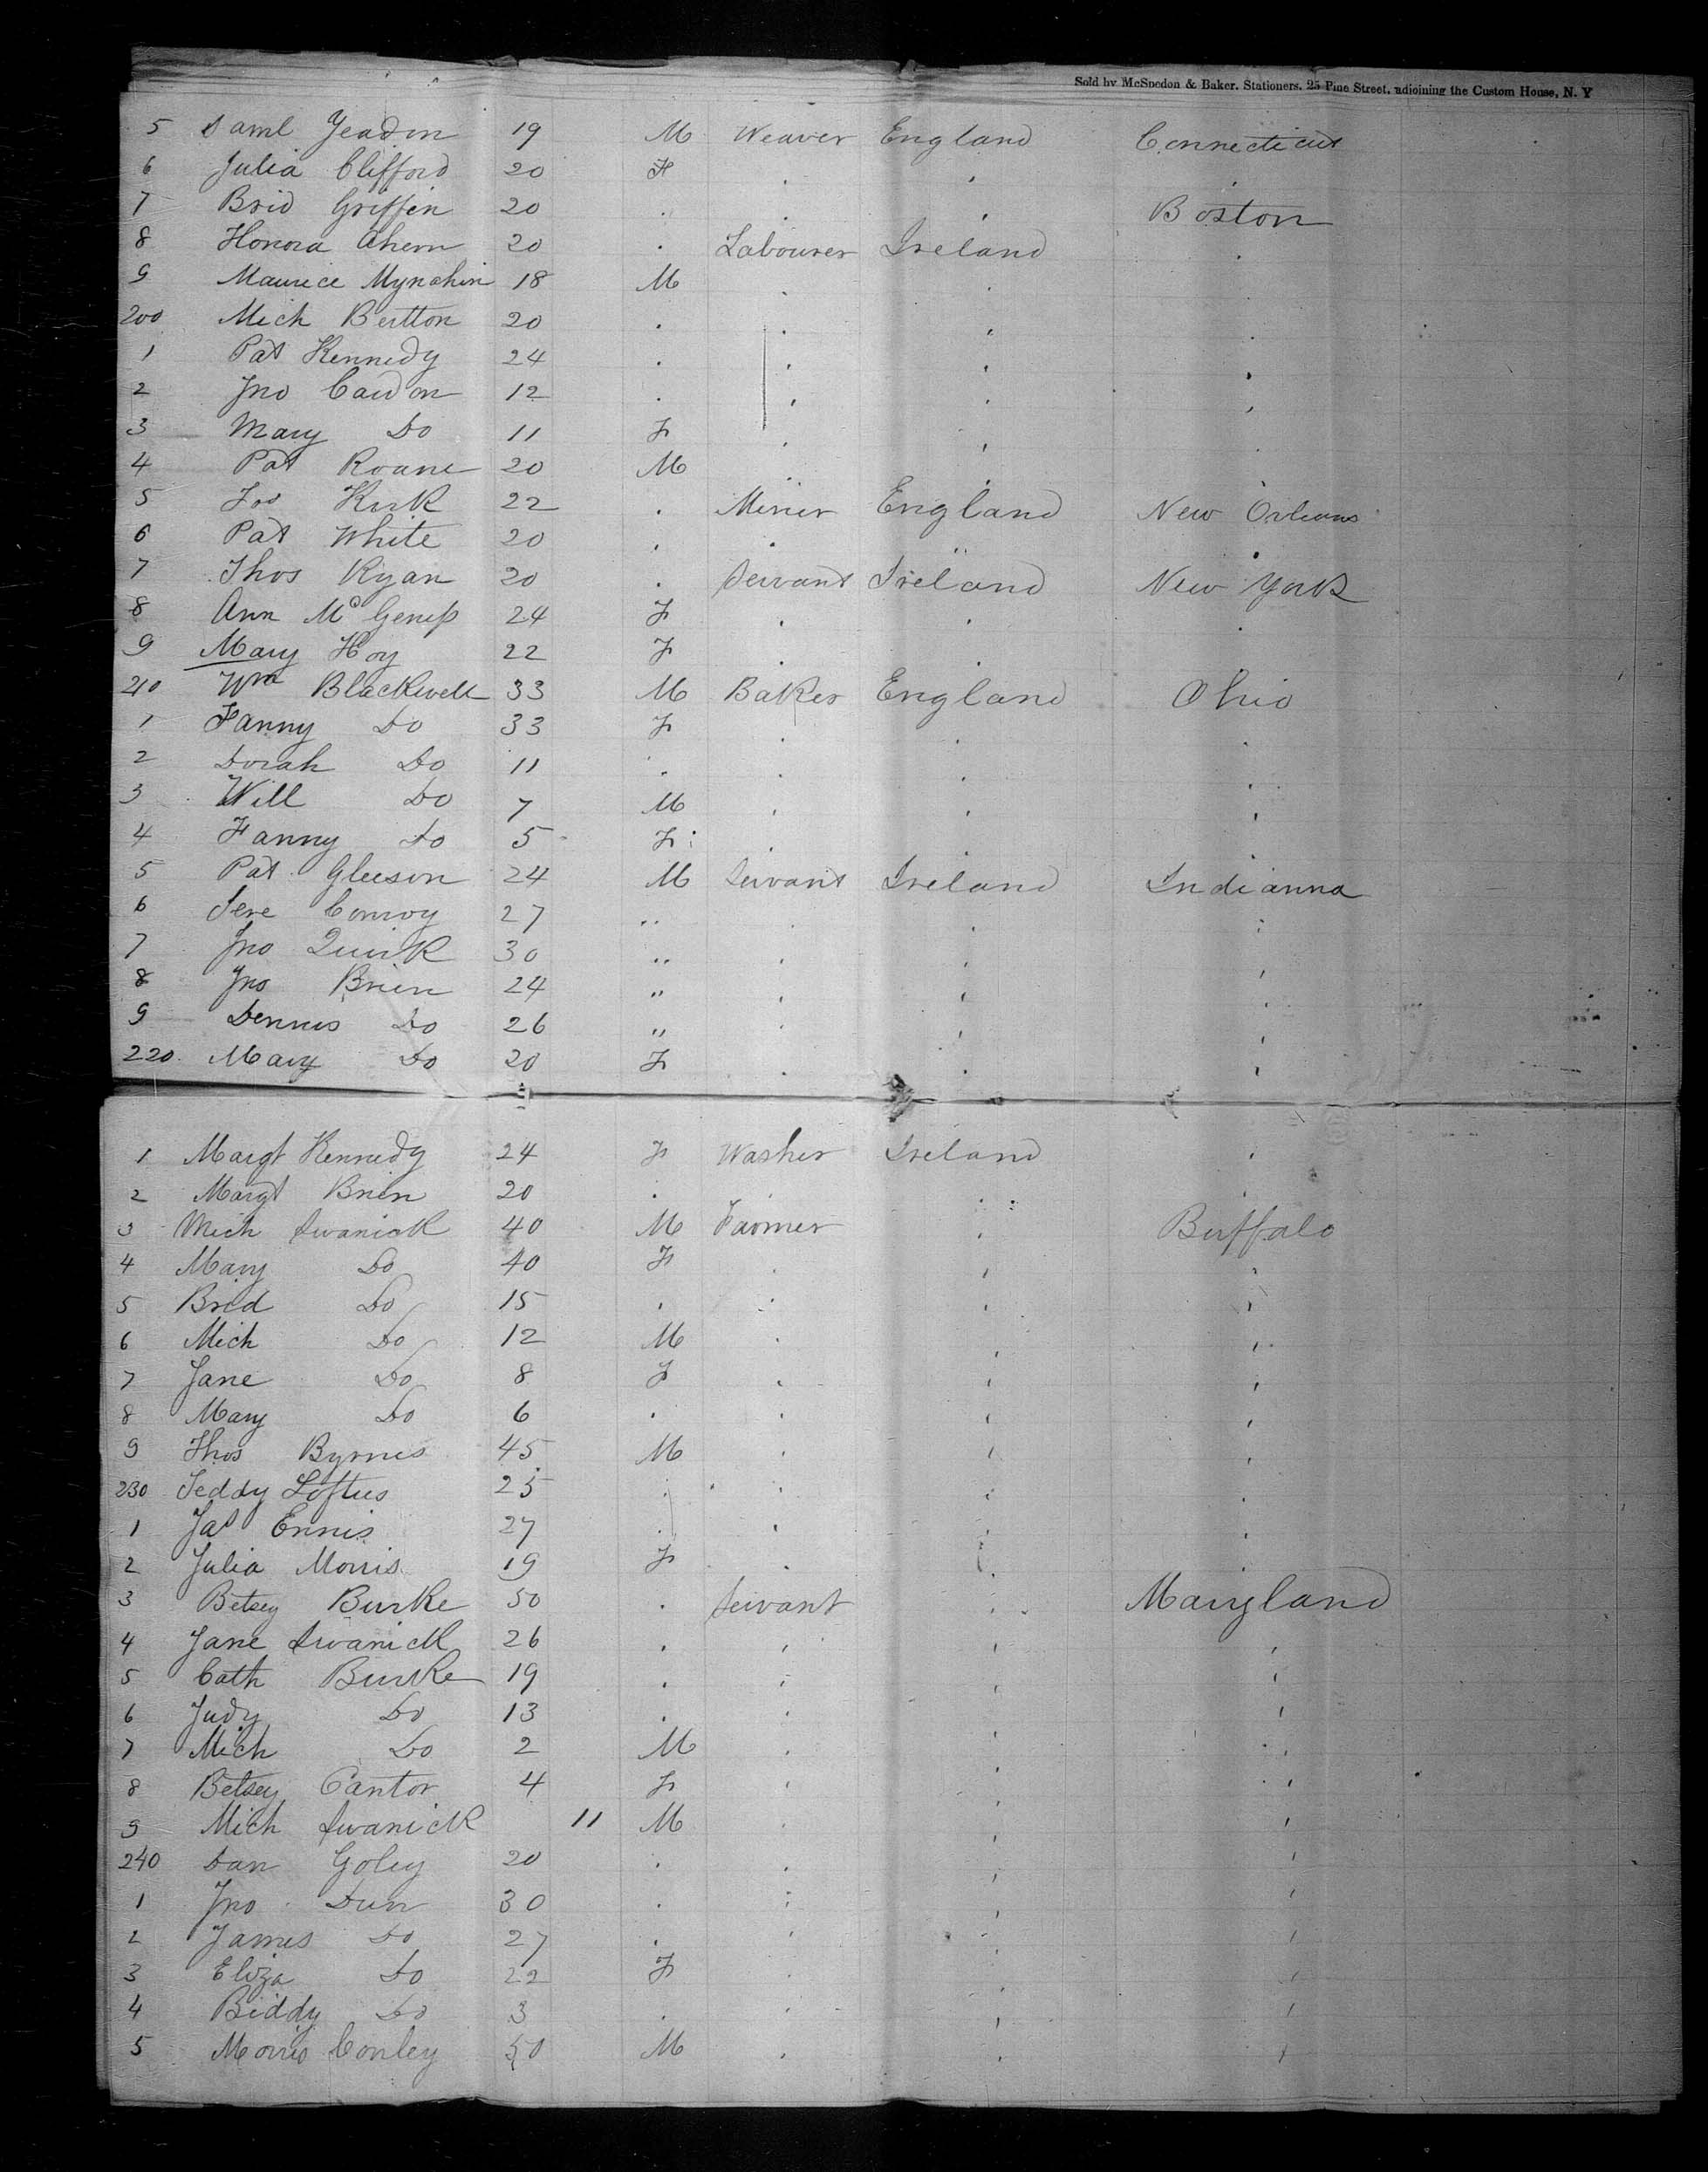 Sold by McSpedon & Baker, Stationers, 25 Pine Street, adjoining the Custom House, N. Y
5 Saml Yeadon 19 M Weaver England Connecticut
6 Julia Clifford 20 F
7 Brid Griffin 20 Boston
8 Honora Ahern 20 Labourer Ireland
9 Maurice Mynahin 18 M
200 Mich Button 20
1 Pat Kennedy 24
2 Jno 12
3 Mary Do 11 F
4 Pat Roane 20 M
5 Jos Kirk 22 Miner England New Orleans
6 Pat White 20
7 Thos Ryan 20 Servant Ireland New York
8 Ann 24 F
9 Mary Hoy 22 F
210 Wm Blackwell 33 M Baker England Ohio
1 Fanny Do 33 F
2 Dorah Do 11
3 Will Do 7 M
4 Fanny Do 5 F
5 Pat Gleeson 24 M Servant Ireland Indianna
6 Jere Conroy 27 "
7 Jno Quirk 30 "
8 Jno Brien 24 "
9 Dennis Do 26 "
220 Mary Do 20 F
1 Margt Kennedy 24 F Washer Ireland
2 Margt Brien 20
3 Mich Swanick 40 M Farmer Buffalo
4 Mary Do 40 F
5 Brid Do 15
6 Mich Do 12 M
7 Jane Do 8 F
8 Mary Do 6
9 Thos Byrnes 45 M
230 Teddy Loftus 25
1 Jas Ennis 27
2 Julia Morris 19 F
3 Betsey Burke 50 Servant Maryland
4 Jane Swanick 26
5 Cath Burke 19
6 Judy Do 13
7 Mich Do 2 M
8 Betsey Cantor 4 F
9 Mich Swanick 11 M
240 Dan Goley 20
1 Jno Dun 30
2 James Do 27
3 Eliza Do 22 F
4 Biddy Do 3
5 Morris Conley 50 M